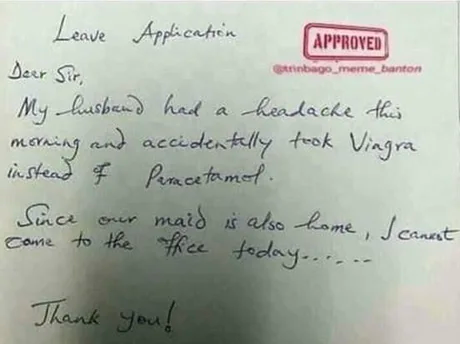 Leave Application
APPROVED
@trinbago_meme_banton
Dear Sir,
My husband had a headache this
morning and accidentally took Viagra
instead of Paracetamol.
Since our maid is also home, I cannot
come to the office today......
Thank you!